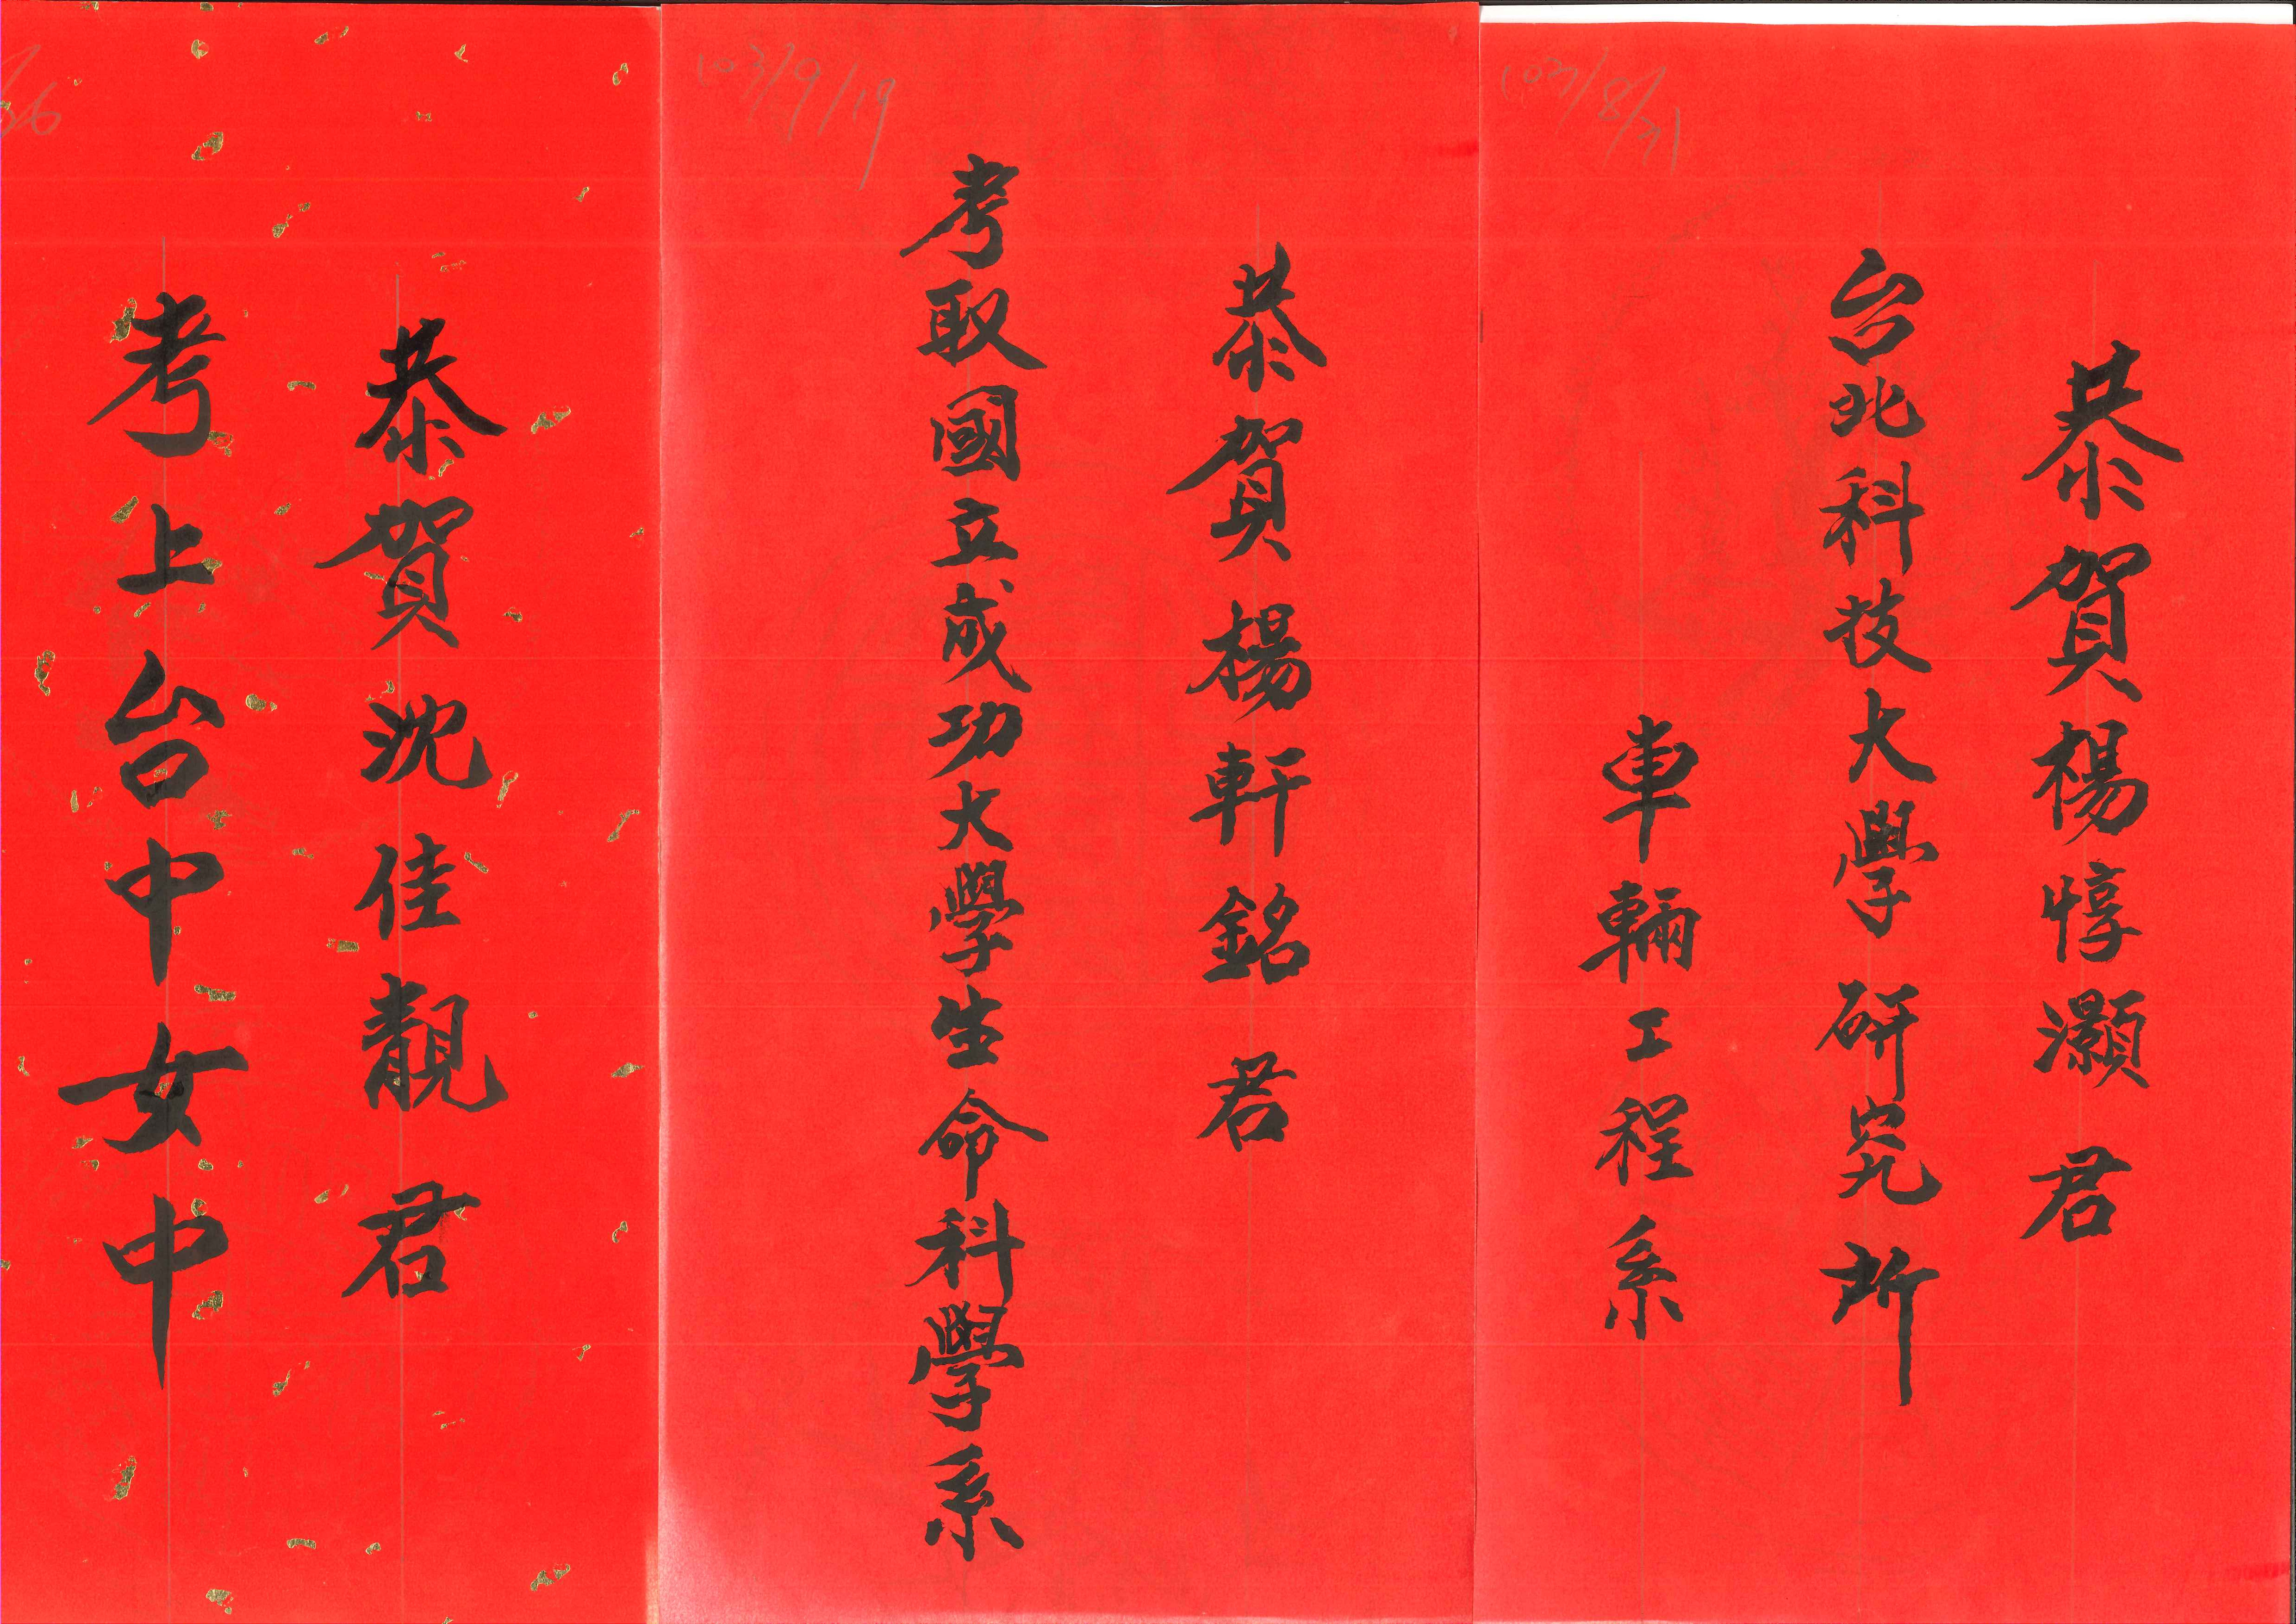 103/8/31
恭賀楊惇灝君
台北科技大學研究所
車輛工程系
103/9/19
恭賀楊軒銘君
考取國立成功大學生命科學系
恭賀沈佳靚君
考上台中女中